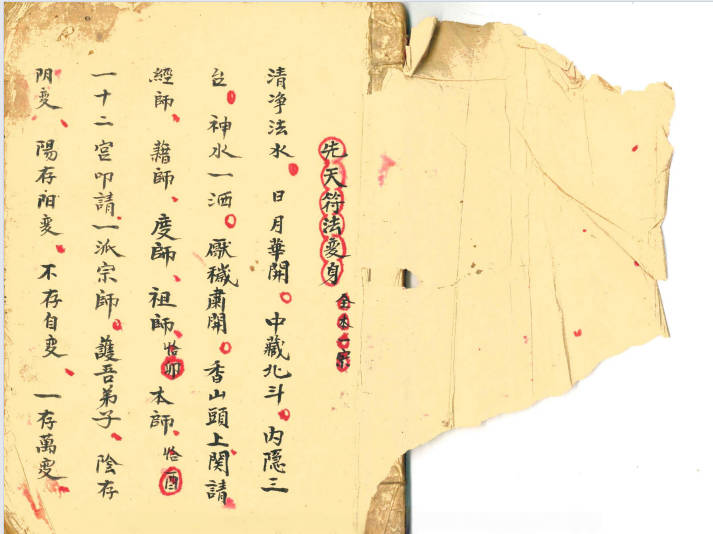 先天符法变身 全本一宗
清净法水 日月華開 中藏北斗 内隐三
台 神水一洒 厭穢肅開 香山頭上関請
經師 籍師 度師 祖師 恰卯 本師 恰酉
一十二宫叩請 一派宗師 護吾弟子 陰存
阴变 陽存阳变 不存自变 一存萬变